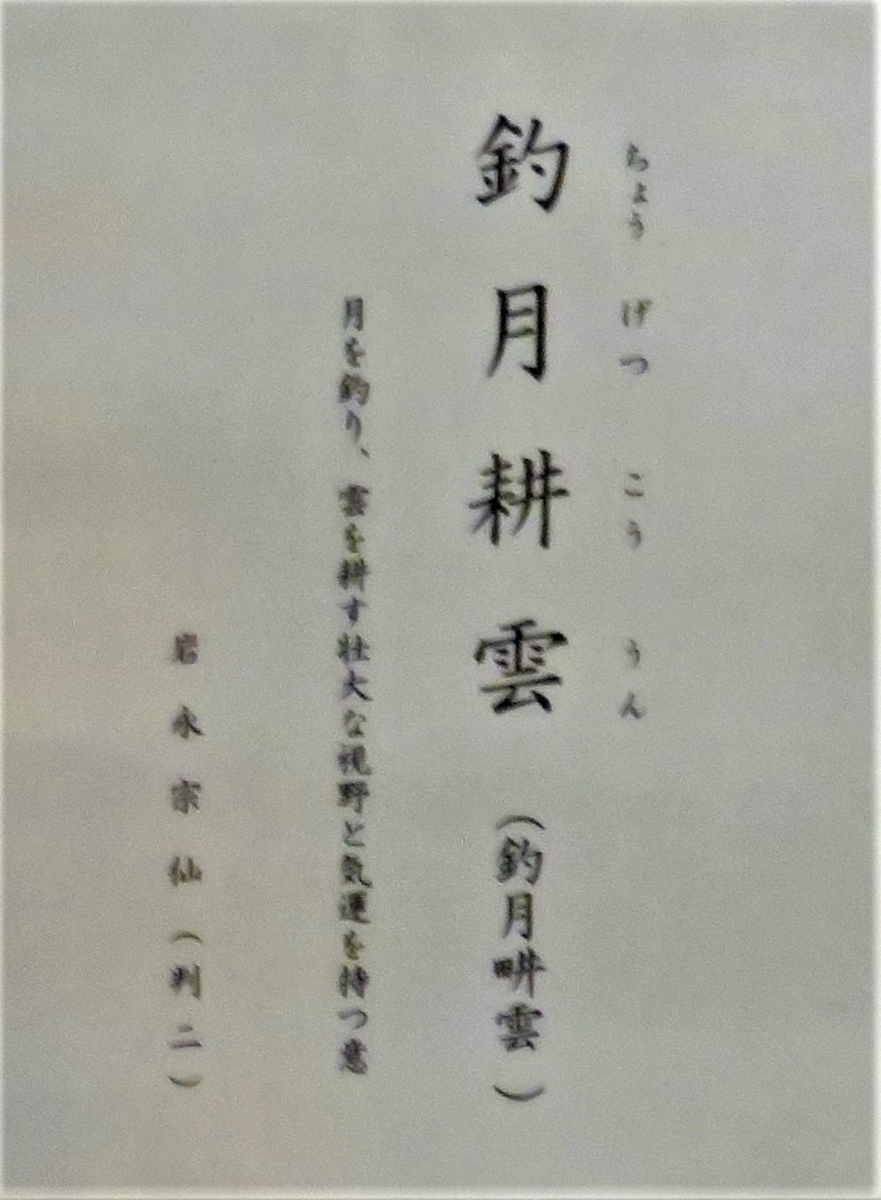 ちょう げつ こう うん
釣月耕雲（釣月畊雲）
月を釣り、雲を耕す壮大な視野と気運を持つ意
岩永宗仙（判二）